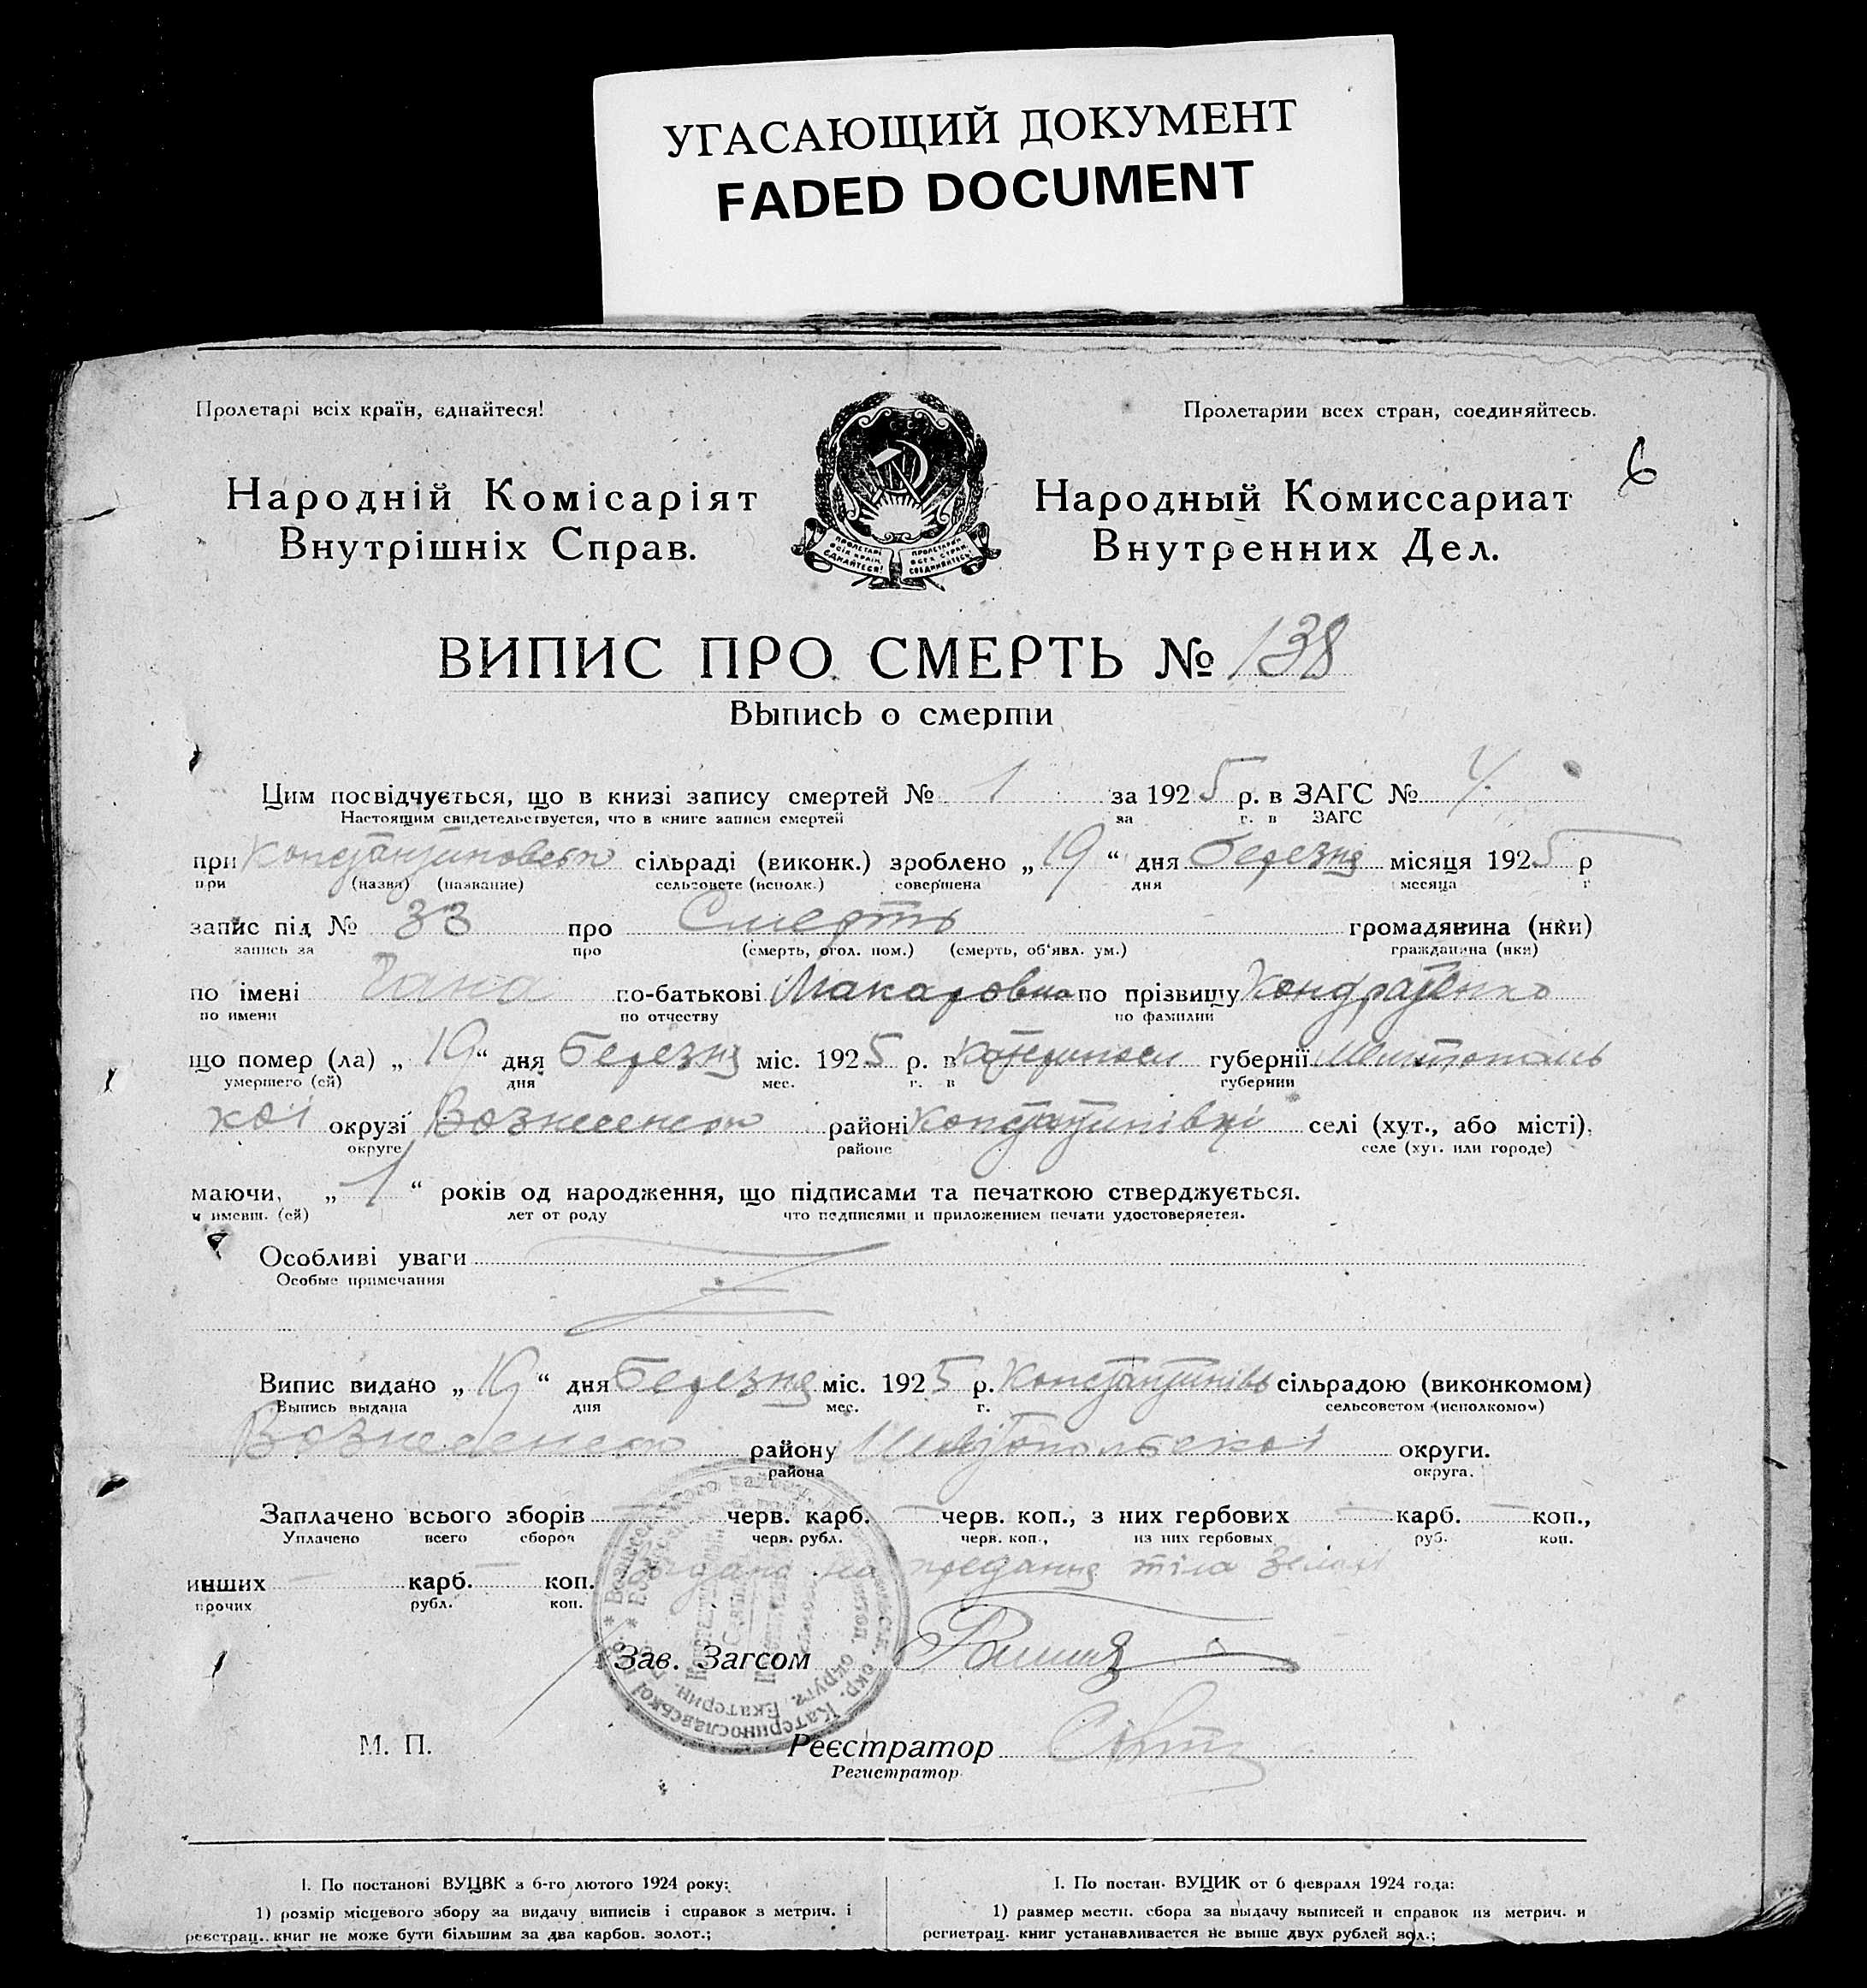 УГАСАЮЩИЙ ДОКУМЕНТ
FADED DOCUMENT
Пролетарі всіх країн, єднайтеся!
Пролетарии всех стран, соединяйтесь.
6
Народній Комісаріят
Внутрішніх Справ.
ПРОЛЕТАРІ ВСІХ КРАЇН ЄДНАЙТЕСЯ!
ПРОЛЕТАРИИ ВСЕХ СТРАН, СОЕДИНЯЙТЕСЬ!
Народный Комиссариат
Внутренних Дел.
ВИПИС ПРО СМЕРТЬ № 138
Выпись о смерти
Цим посвідчується, що в книзі запису смертей № 1 за 1925 р. в ЗАГС № 4
Настоящим свидетельствуется, что в книге записи смертей за г. в ЗАГС
при сільраді (виконк.) зроблено „ 19 “ дня березня місяця 1925 р
при (назва) (название) сельсовете (исполк.) совершена дня месяца г
запис під № 33 про Смерть громадянина (нки)
запись за про (смерть, огол. пом.) (смерть, об'явл. ум.) гражданина (нки)
по імені по-батькові Макаровна по прізвищу Кондратенко
по имени по отчеству по фамилии
що помер (ла) „ 19 “ дня березня міс. 1925 р. в губернії
умершего (ей) дня мес. г. в губернии
кої окрузі Вознесенском районі Констянтинівці селі (хут., або місті),
округе районе селе (хут. или городе)
маючи, „ 1 “ років од народження, що підписами та печаткою стверджується.
и имевш. (ей) лет от роду что подписями и приложением печати удостоверяется.
Особливі уваги
Особые примечания
Випис видано „ 19 “ дня березня міс. 1925 р. Констянтинівс сільрадою (виконкомом)
Выпись выдана дня мес. г. сельсоветом (исполкомом)
району округи.
района округа.
Заплачено всього зборів черв. карб. черв. коп., з них гербових карб. коп.,
Уплачено всего сборов черв. рубл. черв. коп., из них гербовых руб. коп.
инших карб. коп. тіла землі
прочих рубл. коп.
Зав. Загсом
М. П.
Реєстратор
Регистратор
I. По постанові ВУЦВК з 6-го лютого 1924 року:
1) розмір місцевого збору за видачу виписів і справок з метрич. і
реєстрац. книг не може бути більшим за два карбов. золот.;
I. По постан. ВУЦИК от 6 февраля 1924 года:
1) размер местн. сбора за выдачу выписей и справок из метрич. и
регистрац. книг устанавливается не выше двух рублей зол.;